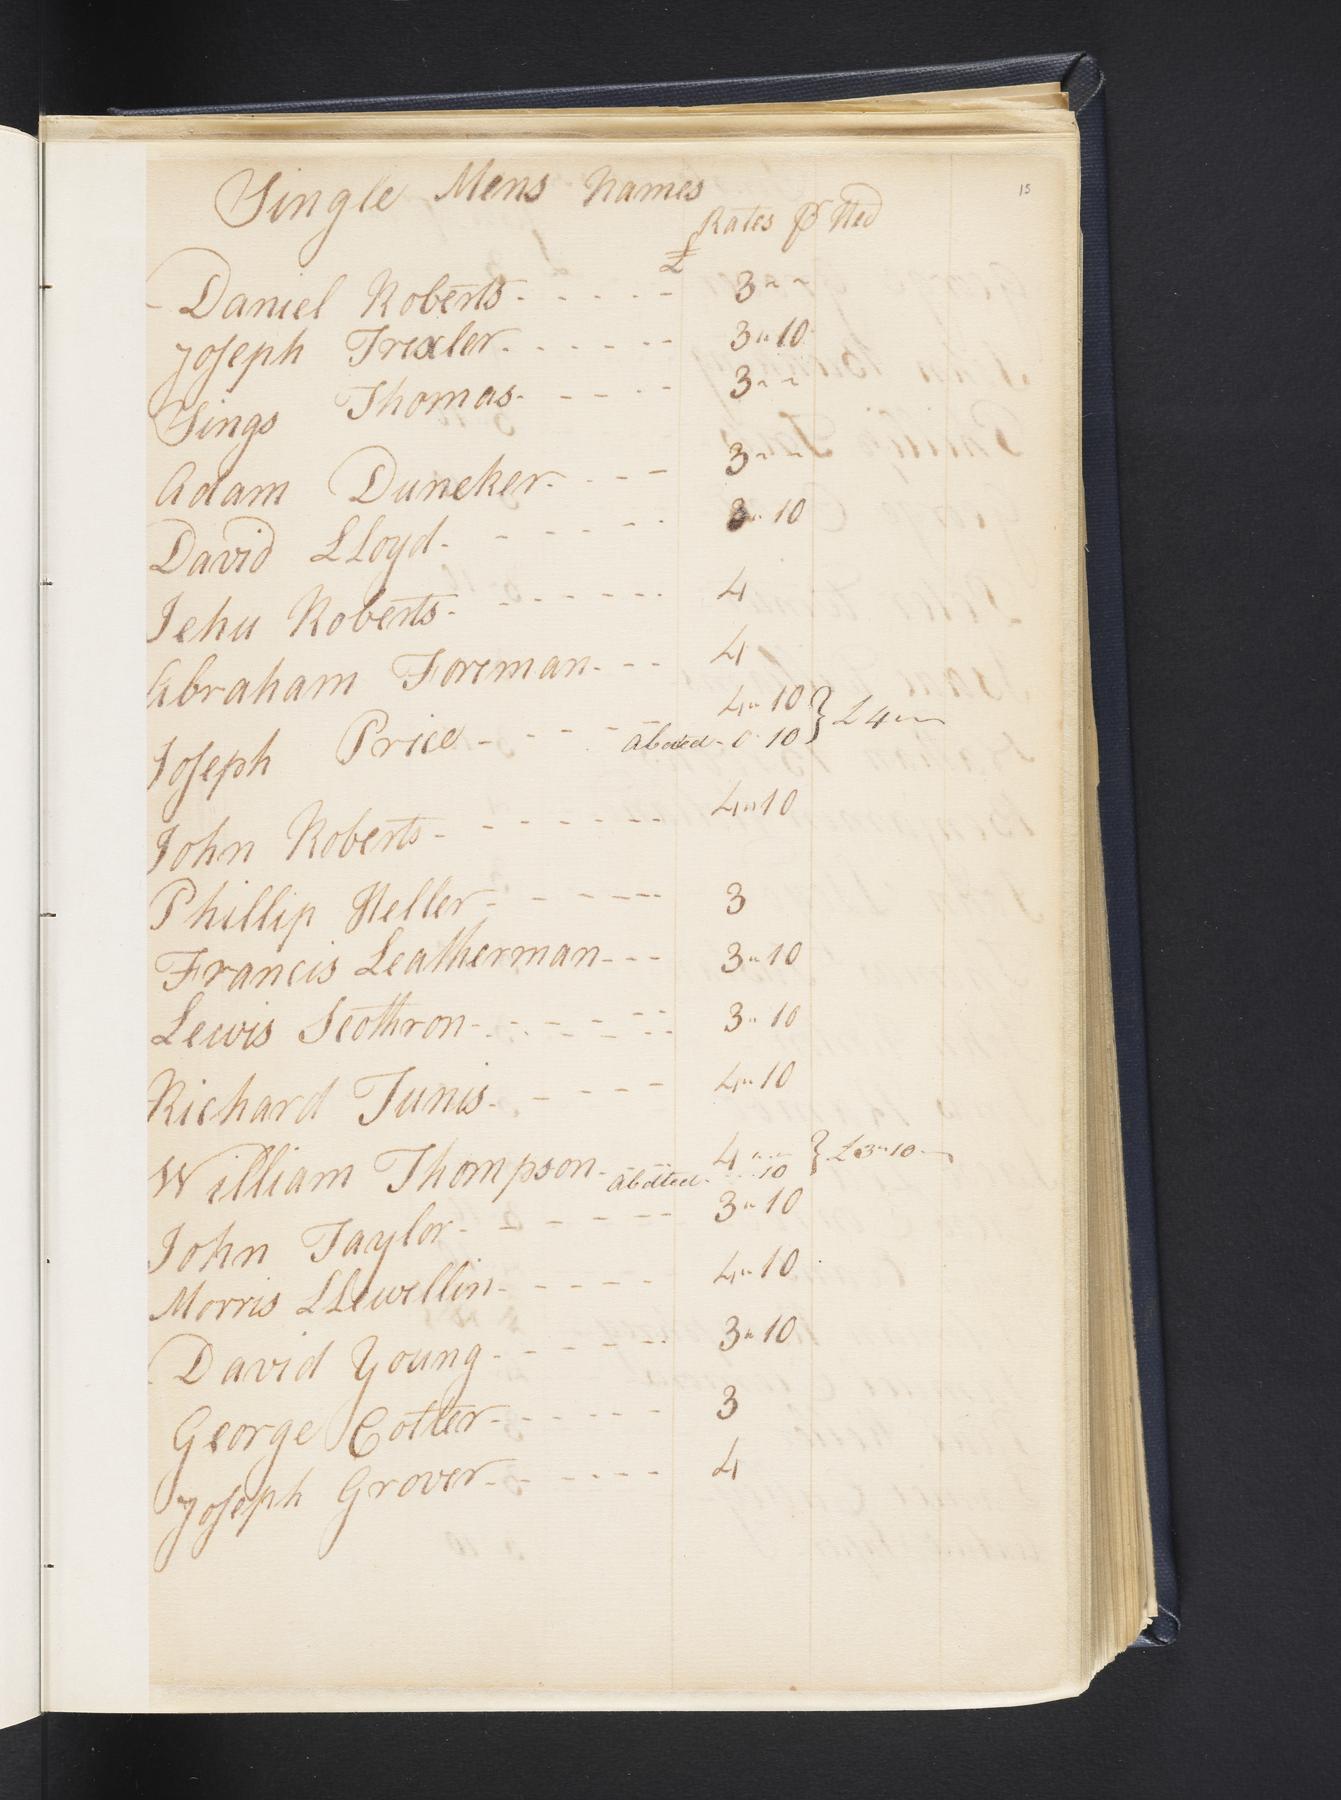 15
Single Mens Names
Rates ꝑ Hed
£
Daniel Roberts - - - - - 3 " "
Joseph Trexler - - - - - - 3 " 10
Sings Thomas - - - - - 3 " "
Adam Duncker - - - - 3 " "
David LLoyd - - - - - 3 " 10
Jehu Roberts - - - - - - - 4
Abraham Foreman - - - 4
Joseph Price - - - - - 4 " 10 } £ 4 " "
abated - 0 " 10
John Roberts - - - - - - - 4 " 10
Phillip Heller - - - - - 3
Francis Leatherman - - - 3 " 10
Lewis Scothron - - - - - - 3 " 10
Richard Tunis - - - - - 4 " 10
William Thompson - - - 4 " " } £ 3 " 10
abatted - " 10
John Taylor - - - - - - 3 " 10
Morris LLewellin - - - - - 4 " 10
David Young - - - - - 3 " 10
George Cotter - - - - - - 3
Joseph Grover - - - - - - 4